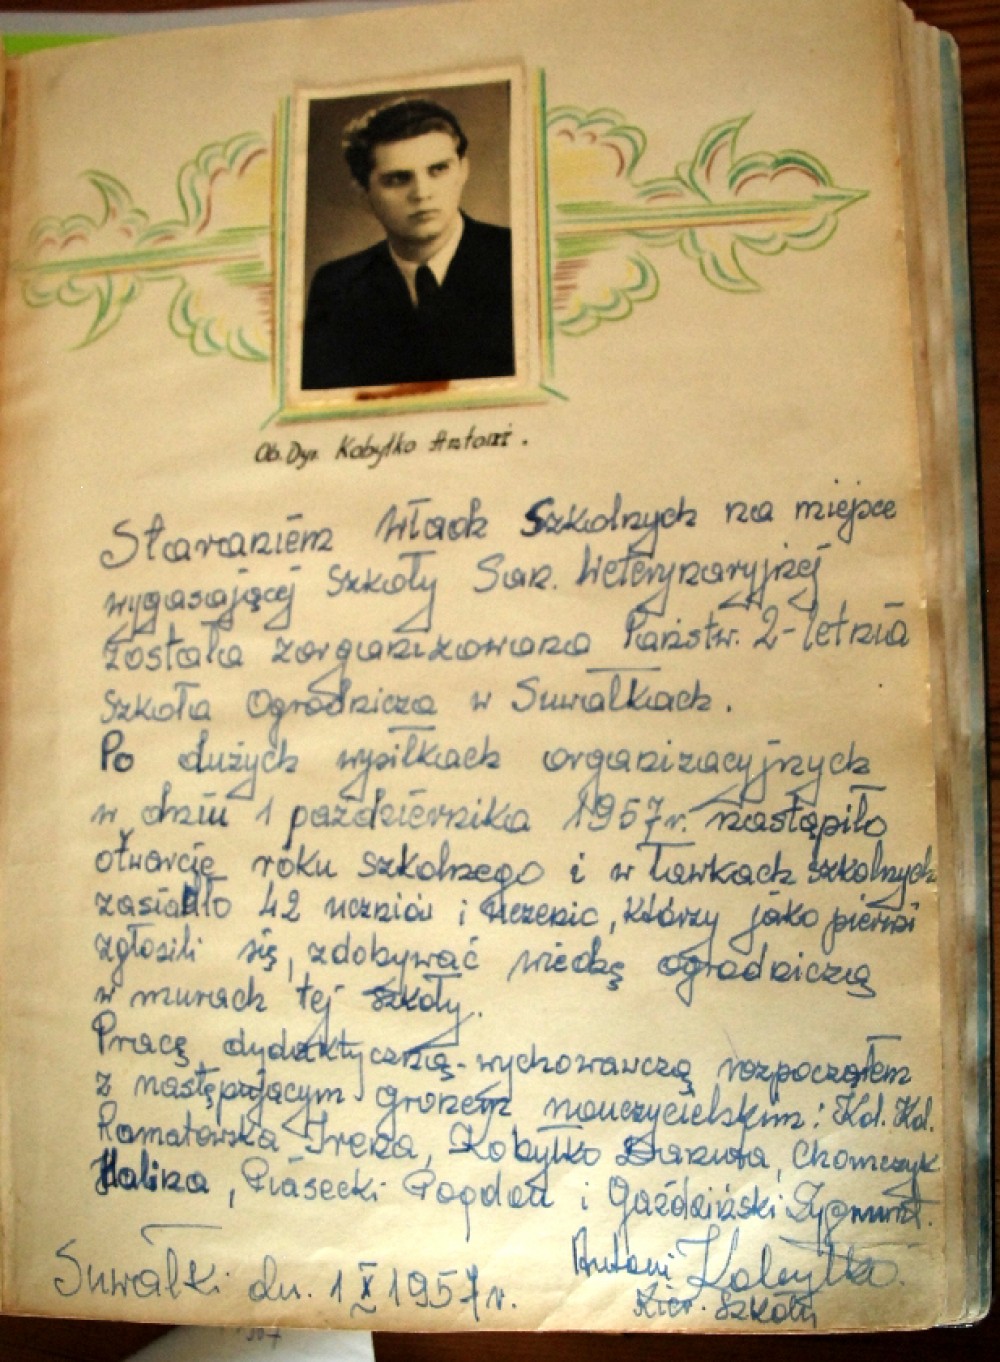 Ob. Dyr. Kobyłko Antoni.
Staraniem Władz Szkolnych na miejsce
wygasającej Szkoły San. Weterynaryjnej
została zorganizowana Państw. 2-letnia
Szkoła Ogrodnicza w Suwałkach.
Po dużych wysiłkach organizacyjnych
w dniu 1 października 1957r. nastąpiło
otwarcie roku szkolnego i w ławkach szkolnych
zasiadło 42 uczniów i uczenic, którzy jako pierwsi
zgłosili się, zdobywać wiedzę ogrodniczą
w murach tej szkoły.
Pracę dydaktyczną-wychowawczą rozpocząłem
z następującym gronem nauczycielskim: Kol. Kol.
Romatowska Irena, Kobyłko Danuta, Chomczyk
Halina, Piasecki Bogdan i Gaździński Zygmunt.
Suwałki dn. 1 X 1957r.
Antoni Kobyłko
Kier. Szkoły